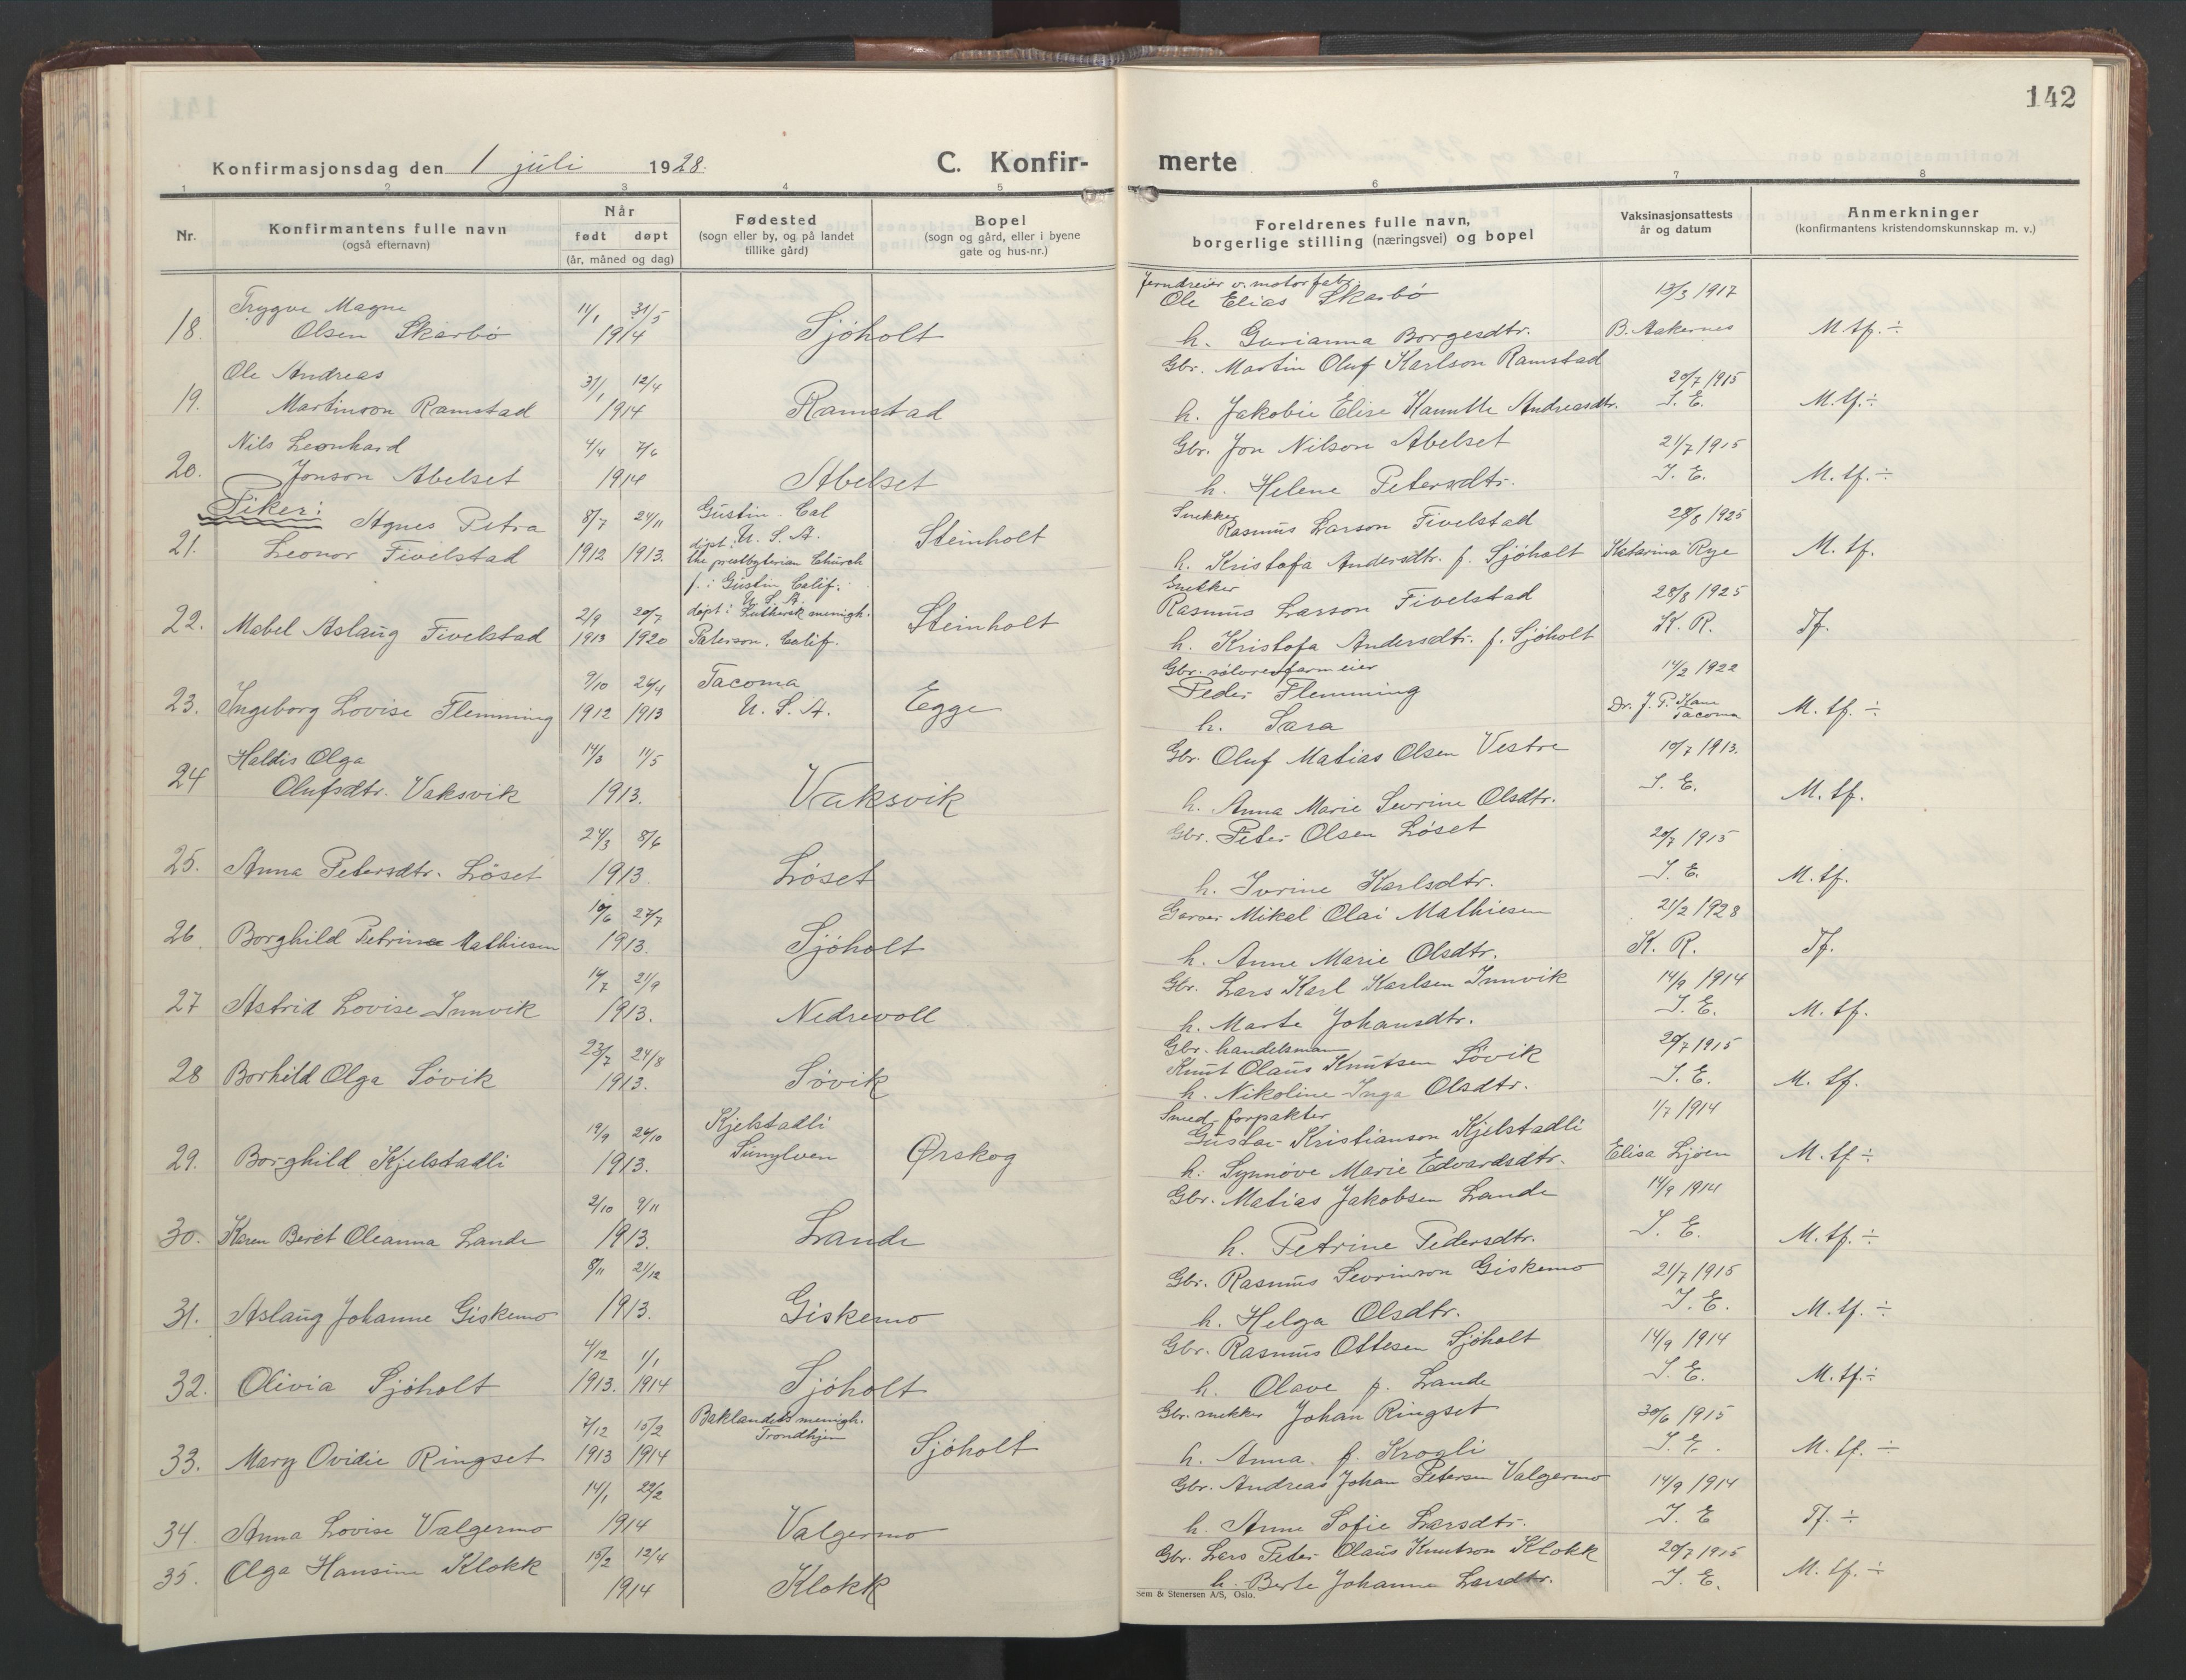 142
Konfirmasjonsdag den 1 juli 1928.
C. Konfir-
merte
1 2 3 4 5 6 7 8
Nr.
Konfirmantens fulle navn
(også efternavn)
Når
født døpt
(år, måned og dag)
Fødested
(sogn eller by, og på landet
tillike gård)
Bopel
(sogn og gård, eller i byene
gate og hus-nr.)
Foreldrenes fulle navn,
borgerlige stilling (næringsvei) og bopel
Vaksinasjonsattests
år og datum
Anmerkninger
(konfirmantens kristendomskunnskap m. v.)
Jerndreier v. motorfabr.
Trygve Magne 11/1 31/5 Ole Elias Skarbö 13/3 1917
18. Olsen Skarbö 1914 Sjöholt h. Gurianna Borgesdtr. B. Aakernes M tf. ÷
Ole Andreas 31/1 12/4 Gbr. Martin Oluf Karlson Ramstad 20/7 1915
19. Martinson Ramstad 1914 Ramstad h. Jakobie Elise Andreasdtr. I. E. M. tf. ÷
Nils Leonhard 4/4 7/6 Gbr. Jon Nilson Abelset 21/7 1915
20. Jonson Abelset 1914 Abelset h. Helene Petersdtr. I. E. M. tf. ÷
Piker: Agnes Petra 8/7 24/11 Gustin. Cal Snekker 28/8 1925
U. S. A. Rasmus Larson Fivelstad
21. Leonor Fivelstad 1912 1913. döpt: the presbyterian Church Steinholt h. Kristofa Andersdtr. f. Sjöholt Katarina Rye M. tf.
f.: Gustin Calif. Snekker
U. S. A. Rasmus Larson Fivelstad 28/8 1925
22. Mabel Aslaug Fivelstad 2/9 1913 20/7 1920 döpt: Luthersk menigh. Paterson. Calif. Steinholt h. Kristofa Andersdtr. f. Sjöholt K. R. Tf.
Gbr. sölvrevfarm eier
9/10 26/4 Tacoma Peder Flemming 14/2 1922
23. Ingeborg Lovise Flemming 1912 1913 U. S. A. Egge h. Sara Dr. J. P. Kane Tacoma M. tf. ÷
Haldis Olga 14/3 11/5 Gbr. Oluf Matias Olsen Vestre 10/7 1913.
24 Olufsdtr. Vaksvik 1913. Vaksvik h. Anna Marie Sevrine Olsdtr. I. E. M. tf.
24/3 8/6 Gbr. Peter Olsen Löset 20/7 1915
25. Anna Petersdtr. Löset 1913. Löset h. Ivrine Karlsdtr. I. E. M. tf.
10/6 27/7 Garver Mikal Olai Mathiesen 21/2 1928
26. Borghild Petrine Mathiesen 1913. Sjöholt h. Anne Marie Olsdtr. K. R. Tf.
14/7 21/9 Gbr. Lars Karl Karlsen Innvik 14/9 1914
27 Astrid Lovise Innvik 1913. Nedrevoll h. Marte Johansdtr. I. E. M. tf.
Gbr. handelsman
23/7 24/8 Knut Olaus Knutsen Sövik 20/7 1915
28 Borhild Olga Sövik 1913. Sövik h. Nikoline Inga Olsdtr. I. E. M. tf.
Smed, forpakter
19/9 26/10 Kjelstadli Gustav Kristianson Kjelstadli 1/7 1914
29. Borghild Kjelstadli 1913. Sunylven Ørskog h. Synnöve Marie Edvardsdtr. Elisa Ljöen M. tf ÷
2/10 9/11 Gbr. Matias Jakobsen Lande 14/9 1914
30. Karen Beret Oleanna Lande 1913. Lande h. Petrine Pedersdtr. I. E. M. tf. ÷
8/11 21/12 Gbr. Rasmus Sevrinson Giskemo 21/7 1915
31. Aslaug Johanne Giskemo 1913. Giskemo h. Helga Olsdtr. I. E. M. tf. ÷
4/12 1/1 Gbr. Rasmus Ottesen Sjöholt 14/9 1914
32. Olivia Sjöholt 1913. 1914 Sjöholt h. Olave f. Lande I. E. M. tf. ÷
7/12 15/2 Baklandets menigh. Trondhjem Gbr. snekker Johan Ringset 30/6 1915
33. Mary Ovidie Ringset 1913 1914 Sjöholt h. Anna f. Krogli I. E. M. tf. ÷
14/1 22/2 Gbr. Andreas Johan Petersen Valgermo 14/9 1914
34. Anna Lovise Valgermo 1914 Valgermo h. Anne Sofie Larsdtr. I. E Tf. ÷
35. Olga Hansine Klokk 15/2 12/4 Gbr. Lars Peter Olaus Knutson Klokk 20/7 1915
1914 Klokk h. Berte Johanne Larsdtr. I. E. M. tf. ÷
Sem & Stenersen A/S, Oslo.